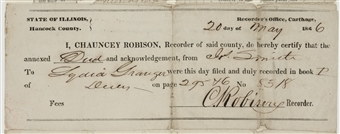 STATE OF ILLINOIS, Recorder's Office, Carthage,
Hancock County. 20 day of May 1846
I, CHAUNCEY ROBISON, Recorder of said county, do hereby certify that the
annexed Deed and acknowledgment, from Smith
To Lydia Granger were this day filed and duly recorded in book
of Deeds on page No
Fees C Robison Recorder.